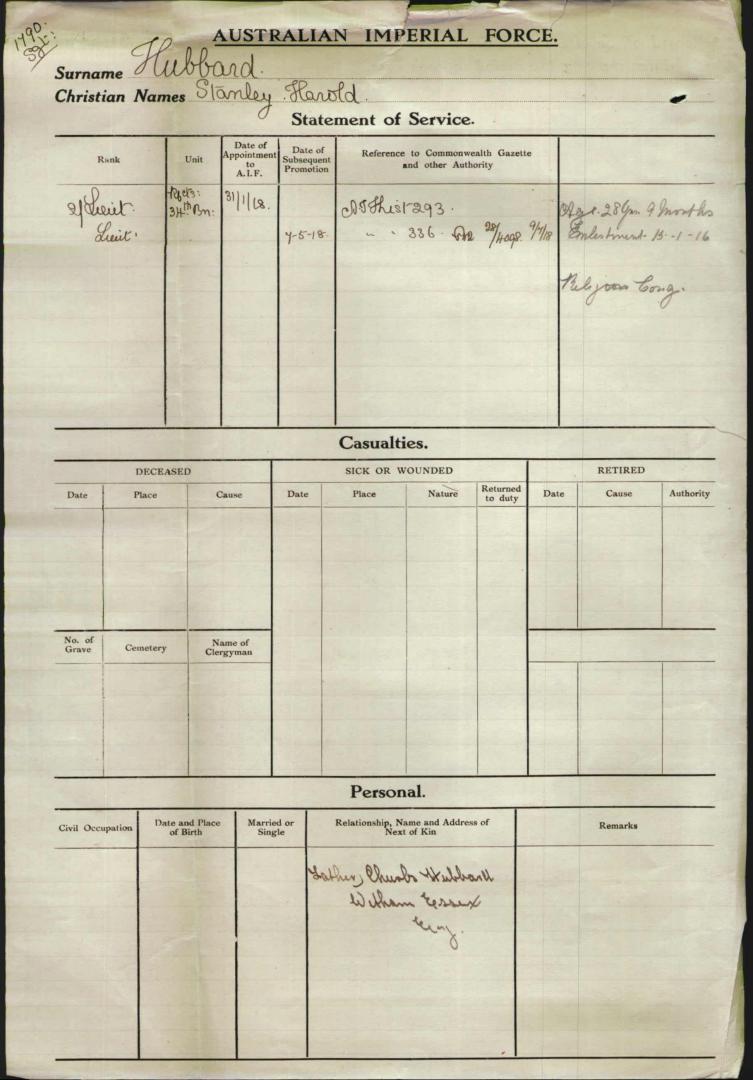 1790.
Sgt:
AUSTRALIAN IMPERIAL FORCE.
Surname Hubbard.
Christian Names Stanley Harold.
Statement of Service.
Rank Unit Date of Appointment to A.I.F. Date of Subsequent Promotion Reference to Commonwealth Gazette and other Authority
2/Lieut. Rfcts: 34th Bn: 31/1/18. List 293. Age. 28 Yrs. 9 Months
Lieut. 7-5-18. " " 336 28/4098. 9/7/18 Enlistment 15-1-16
Religion Cong.
Casualties.
DECEASED SICK OR WOUNDED RETIRED
Date Place Cause Date Place Nature Returned to duty Date Cause Authority
No. of Grave Cemetery Name of Clergyman
Personal.
Civil Occupation Date and Place of Birth Married or Single Relationship, Name and Address of Next of Kin Remarks
Father, Hubbard
Witham Essex
Eng.